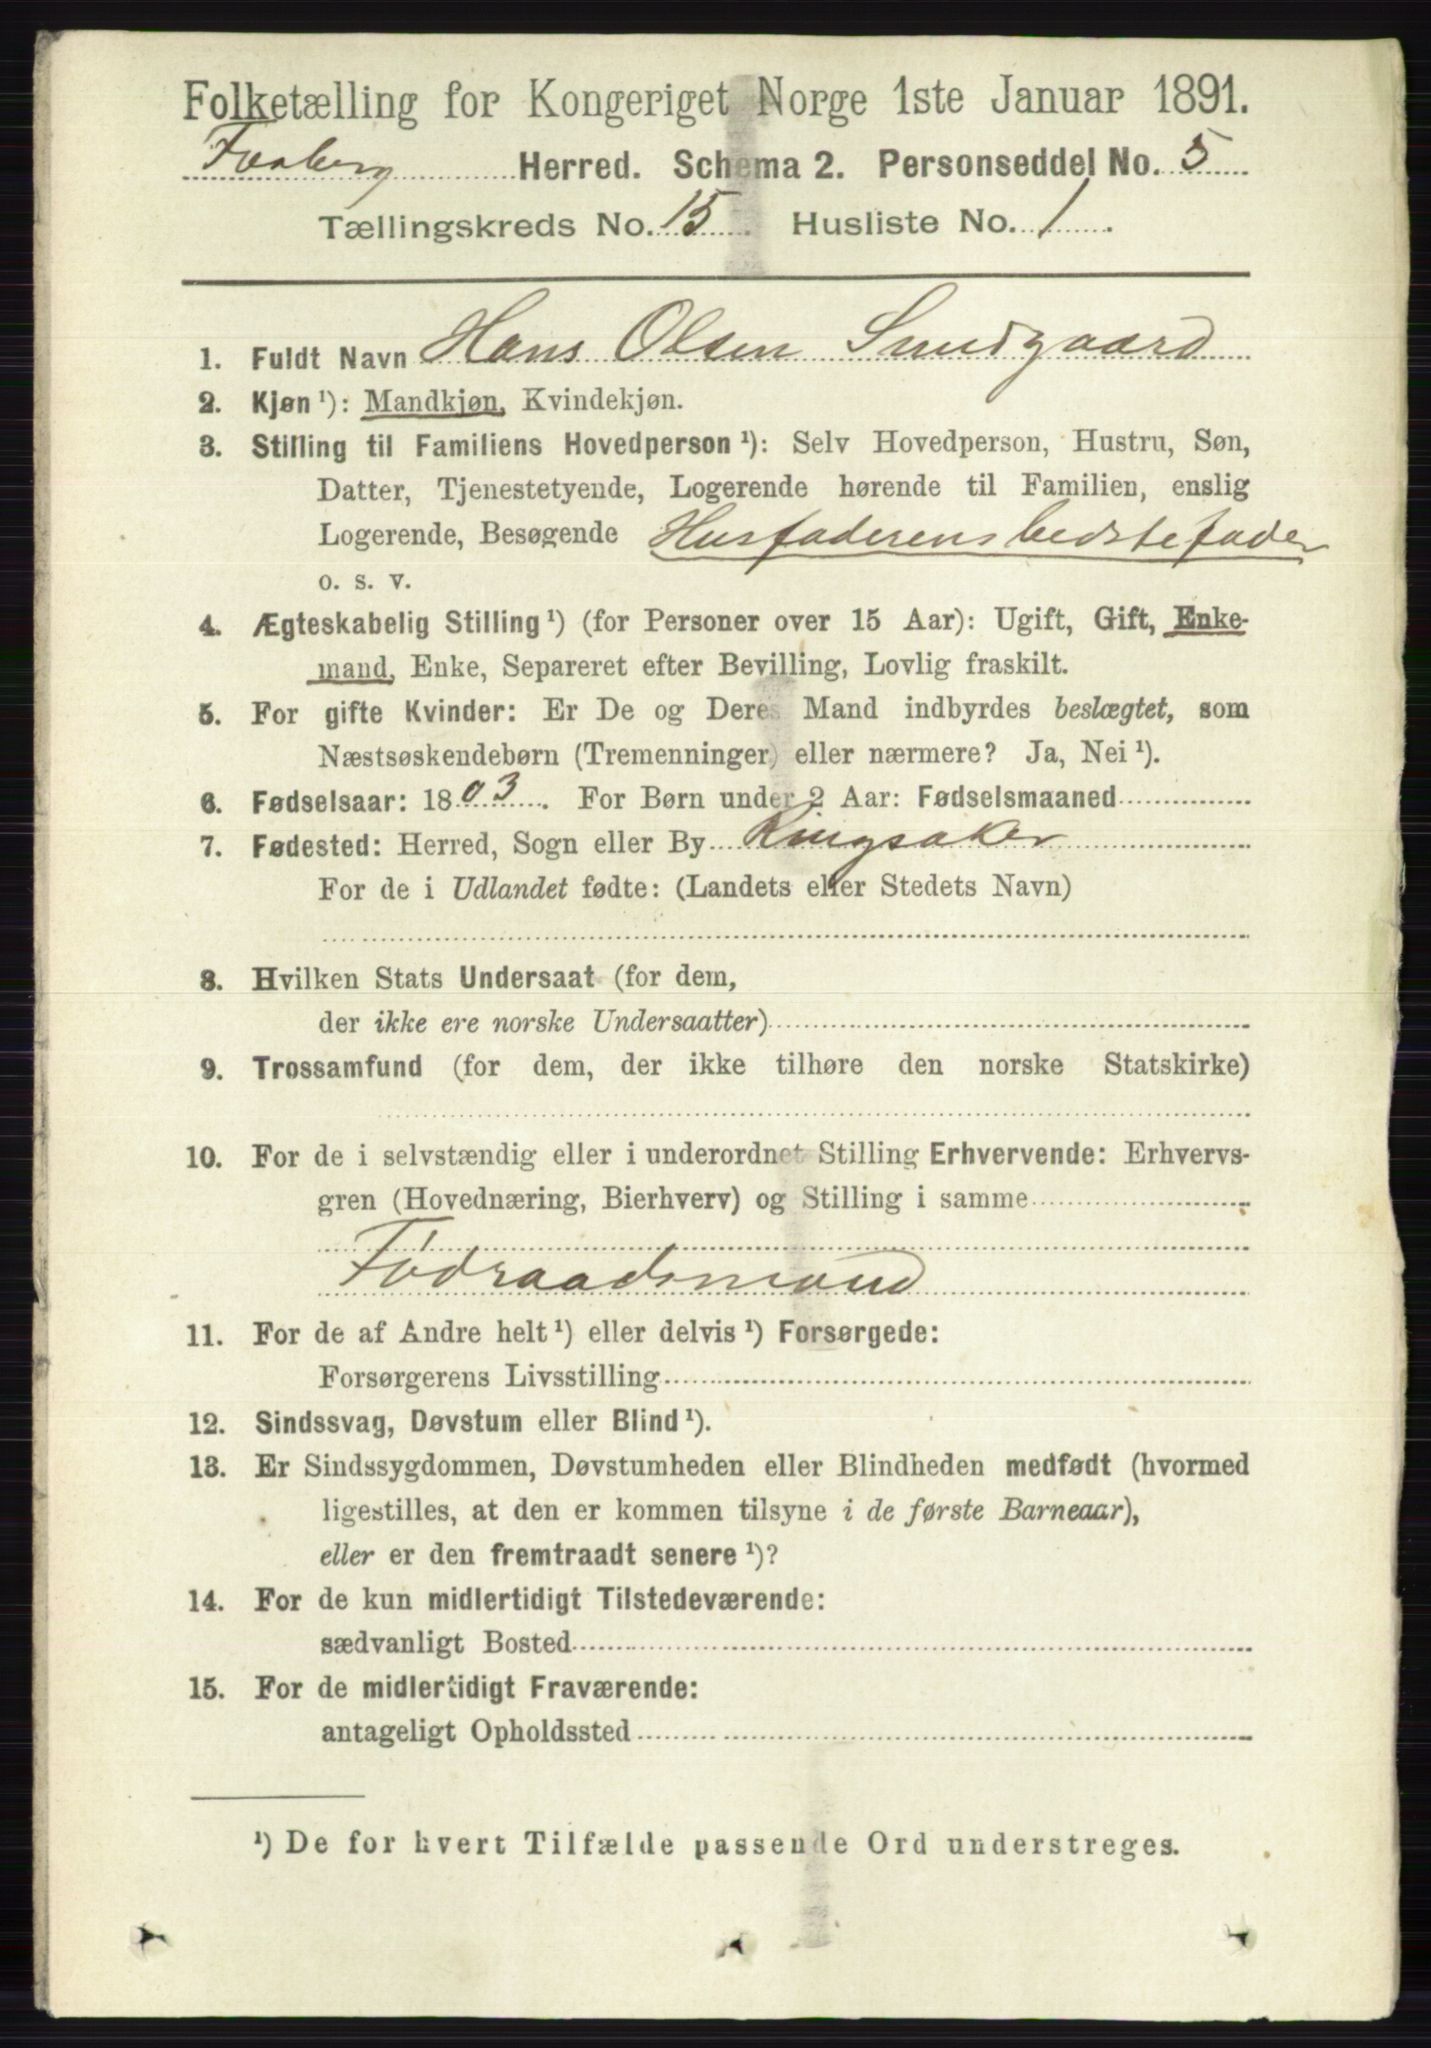 Folketælling for Kongeriget Norge 1ste Januar 1891.
Faaberg Herred. Schema 2. Personseddel No. 5
Tællingskreds No. 15. Husliste No. 1.
1. Fuldt Navn Hans Olsen Smedgaard
2. Kjøn ¹): Mandkjøn, Kvindekjøn.
3. Stilling til Familiens Hovedperson ¹): Selv Hovedperson, Hustru, Søn,
Datter, Tjenestetyende, Logerende hørende til Familien, enslig
Logerende, Besøgende Husfaderens bedstefader
o. s. v.
4. Ægteskabelig Stilling ¹) (for Personer over 15 Aar): Ugift, Gift, Enke-
mand, Enke, Separeret efter Bevilling, Lovlig fraskilt.
5. For gifte Kvinder: Er De og Deres Mand indbyrdes beslægtet, som
Næstsøskendebørn (Tremenninger) eller nærmere? Ja, Nei ¹).
6. Fødselsaar: 1803. For Børn under 2 Aar: Fødselsmaaned
7. Fødested: Herred, Sogn eller By Ringsaker
For de i Udlandet fødte: (Landets eller Stedets Navn)
8. Hvilken Stats Undersaat (for dem,
der ikke ere norske Undersaatter)
9. Trossamfund (for dem, der ikke tilhøre den norske Statskirke)
10. For de i selvstændig eller i underordnet Stilling Erhvervende: Erhvervs-
gren (Hovednæring, Bierhverv) og Stilling i samme
Födraadsmand
11. For de af Andre helt ¹) eller delvis ¹) Forsørgede:
Forsørgerens Livsstilling
12. Sindssvag, Døvstum eller Blind ¹).
13. Er Sindssygdommen, Døvstumheden eller Blindheden medfødt (hvormed
ligestilles, at den er kommen tilsyne i de første Barneaar),
eller er den fremtraadt senere ¹)?
14. For de kun midlertidigt Tilstedeværende:
sædvanligt Bosted
15. For de midlertidigt Fraværende:
antageligt Opholdssted
¹) De for hvert Tilfælde passende Ord understreges.